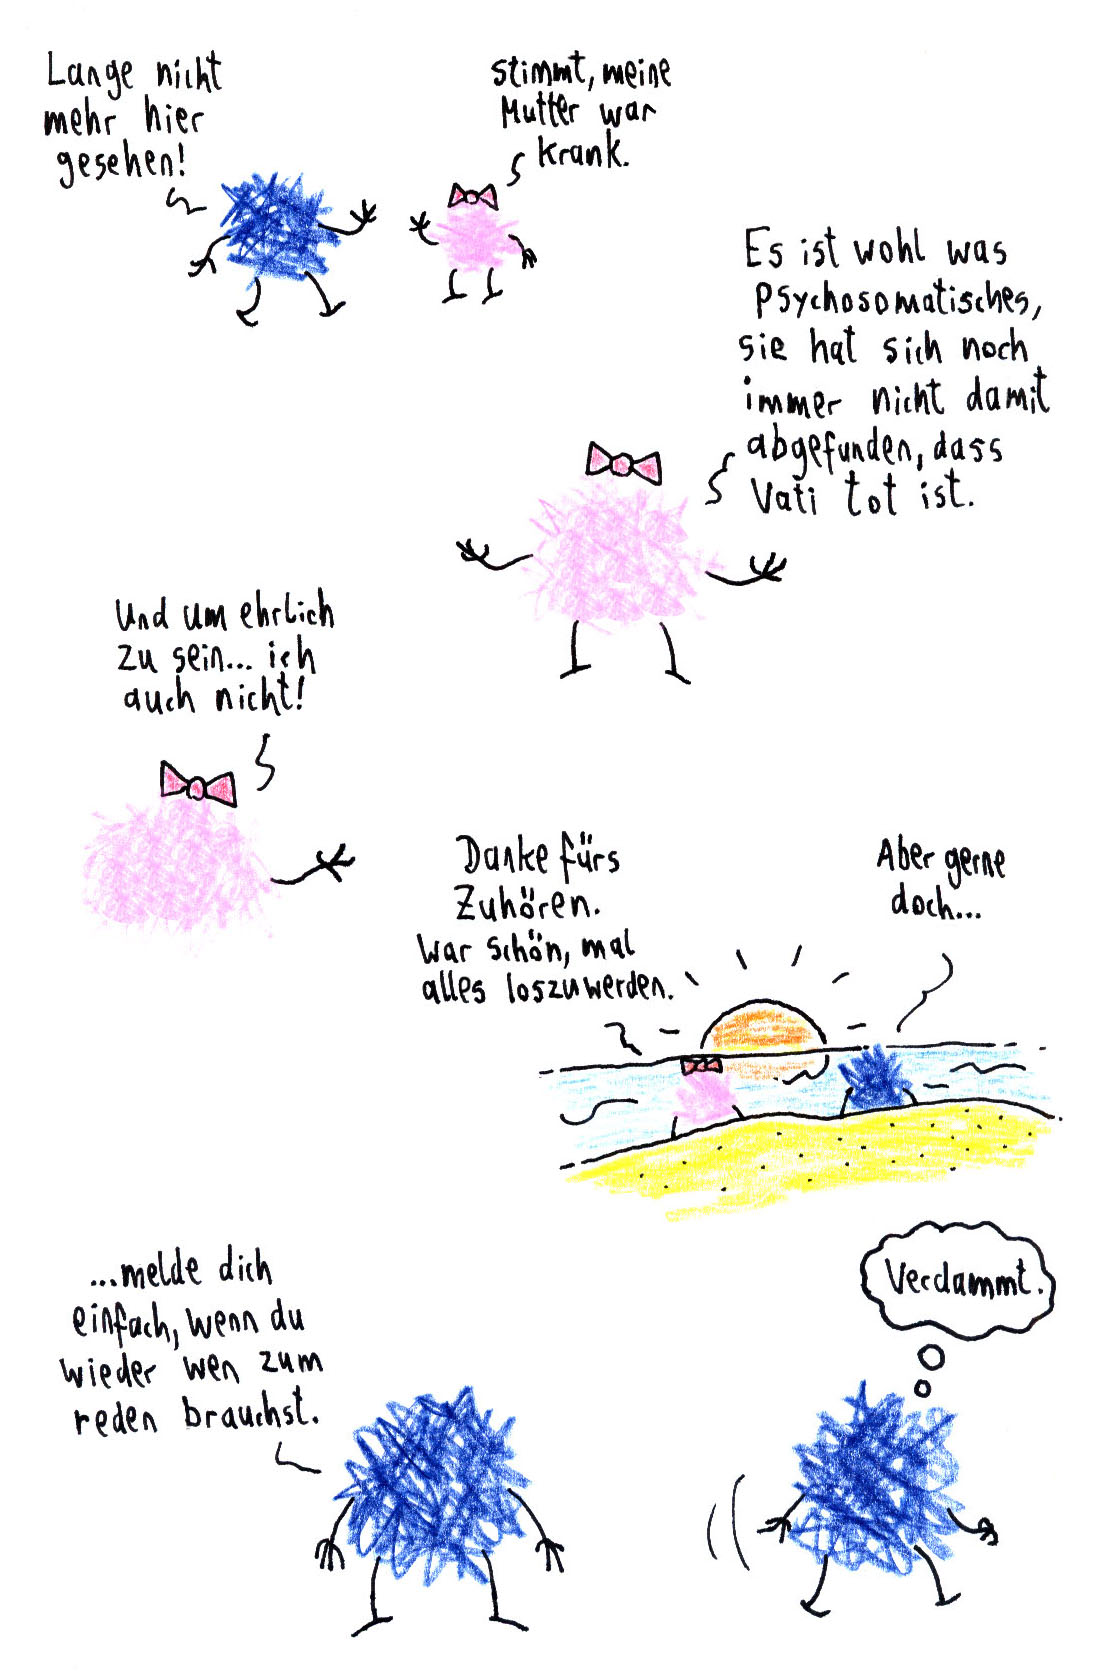 Lange nicht
mehr hier
gesehen!
stimmt, meine
Mutter war
krank.
Es ist wohl was
psychosomatisches,
sie hat sich noch
immer nicht damit
abgefunden, dass
Vati tot ist.
Und um ehrlich
zu sein... ich
auch nicht!
Danke fürs
Zuhören.
War schön, mal
alles loszuwerden.
Aber gerne
doch...
...melde dich
einfach, wenn du
wieder wen zum
reden brauchst.
Verdammt.